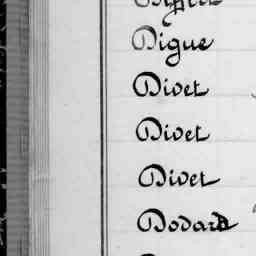 Digue
Divet
Divet
Divet
Dodard